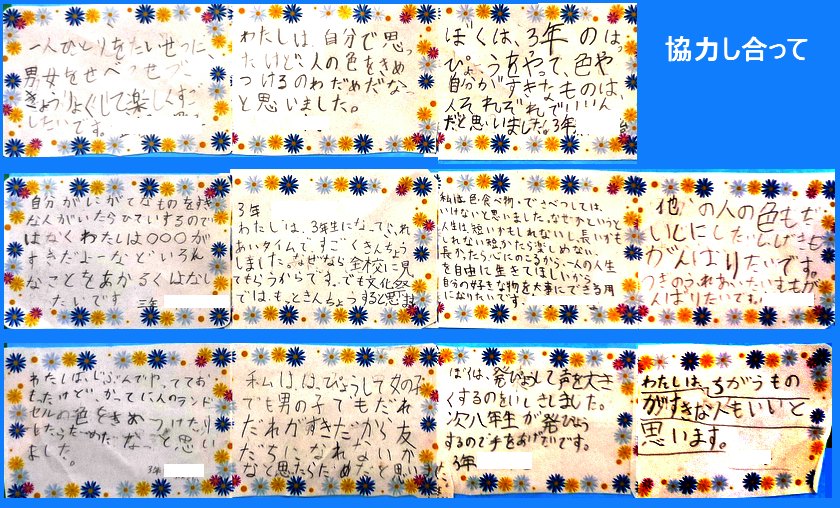 協力し合って
一人ひとりをたいせつに、
男女をせべつせず、
きょうりょくして楽しくすご
したいです。
わたしは、自分で思っ
たけど、人の色をきめ
つけるのわだめだな
と思いました。
ぼくは、3年のはっ
ぴょうをやって、色や
自分がすきなものは、
人それぞれでいいん
だと思いました。3年
自分がにがてなものをすき
な人がいたらひていするので
はなくわたしは○○○が
すきだよーなどいろん
なことをあかるくはなし
たいです
三年
3年
わたしは、3年生になって、ふれ
あいタイムで、すごくきんちょう
しました。なぜなら全校に見
てもらうからです。でも文化祭
では、もっときんちょうすると思います
私は、色・食べ物・でさべつしては、
いけないと思いました。なぜかというと
人生は、短いかもしれないし、長いかも
しれない短かたら楽しめない、
長かたら心にのこるから、一人の人生
を自由に生きてほしいから
自分の好きな物を大事にできる用
になりたいです。
他の人の色もだ
いじにしたい
がんばりたいです。
つぎのふれあいたいむもが
んばりたいです。
わたしは、じぶんでやっててお
もったけど、かってに人のランド
セルの色をきめつけたり
したらだめだなっと思い
ました。
3年
私は、はっぴょうして女の子
でも男の子でもだれ
だれがすきだから友
だちになれないか
なと思たらだめだと思いました
ぼくは、発ぴょして声を大き
くするのをいしきしました。
次八年生が発ぴょう
するので手をあげたいです。
3年
わたしは、ちがうもの
がすきな人もいいと
思います。